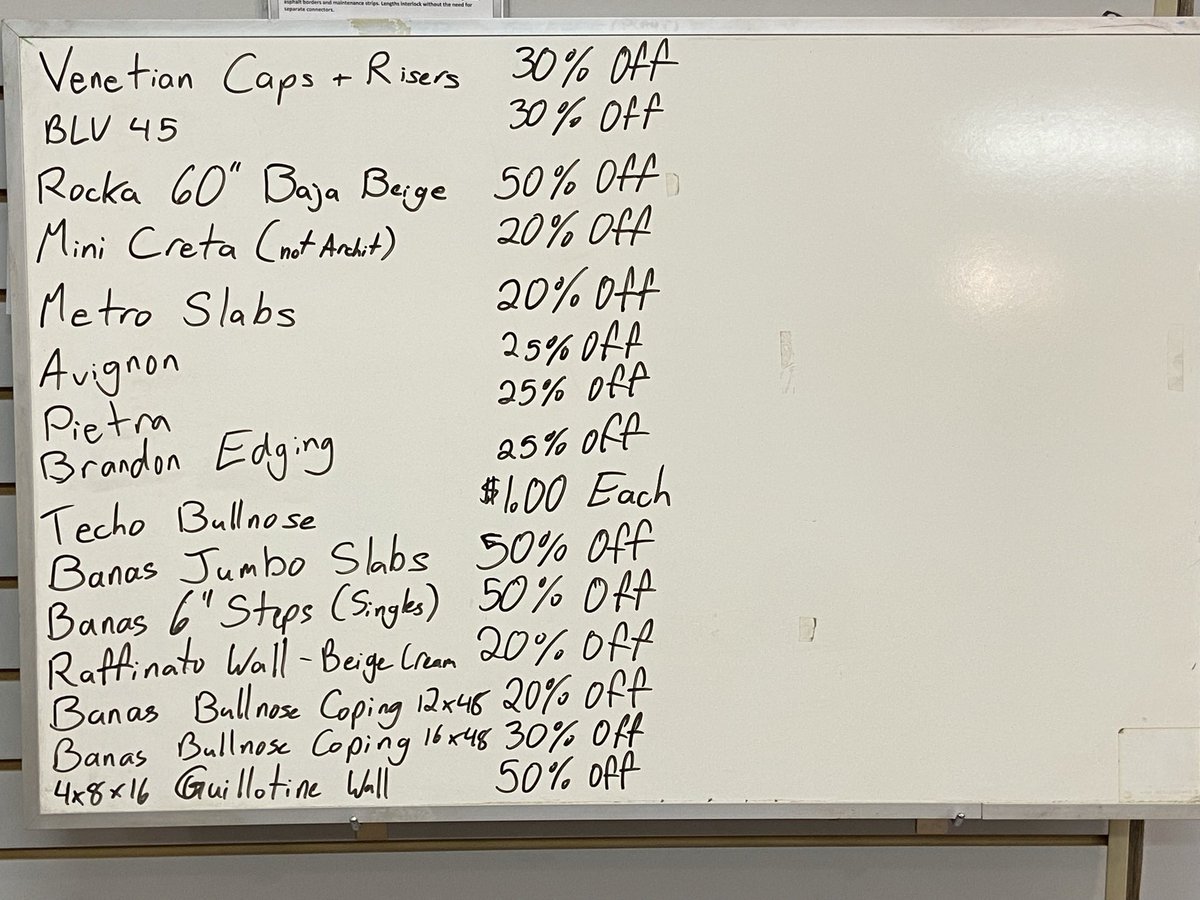 asphalt borders and maintenance strips. Lengths interlock without the need for
separate connectors.
Venetian Caps + Risers 30% Off
BLV 45 30% Off
Rocka 60" Baja Beige 50% Off
Mini Creta (not Archit) 20% Off
Metro Slabs 20% Off
Avignon 25% Off
Pietra 25% Off
Brandon Edging 25% Off
Techo Bullnose $1.00 Each
Banas Jumbo Slabs 50% Off
Banas 6" Steps (Singles) 50% Off
Raffinato Wall - Beige Cream 20% Off
Banas Bullnose Coping 12x48 20% Off
Banas Bullnose Coping 16x48 30% Off
4x8x16 Guillotine Wall 50% Off